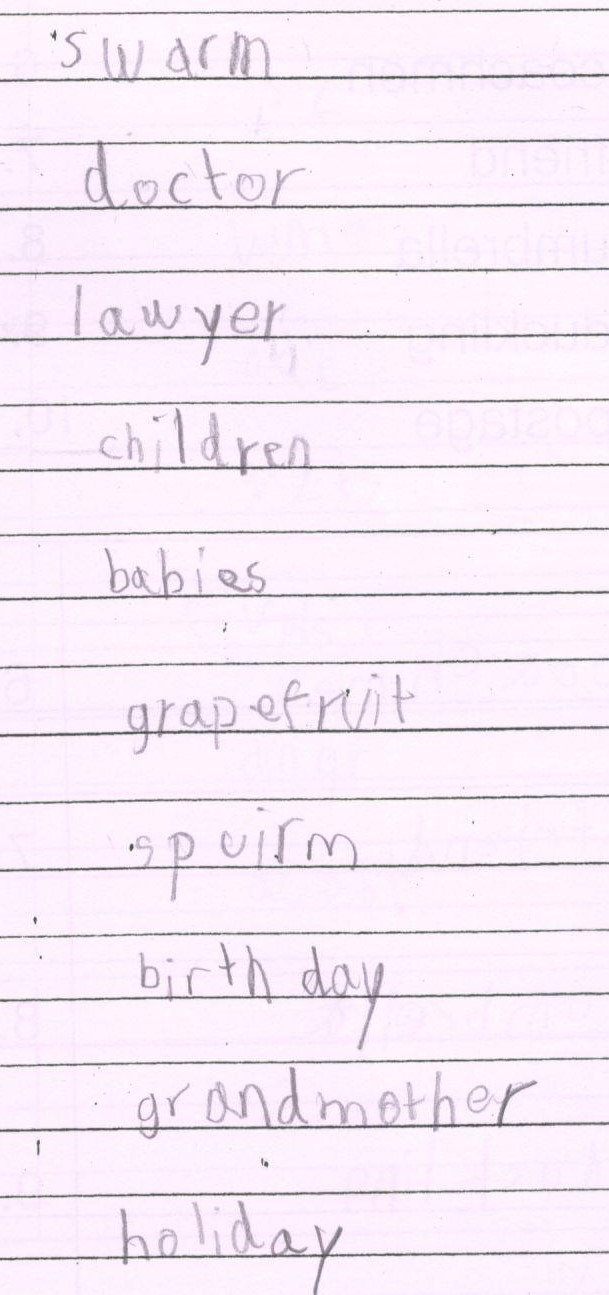 swarm
doctor
lawyer
children
babies
grapefruit
spuirm
birthday
grandmother
holiday